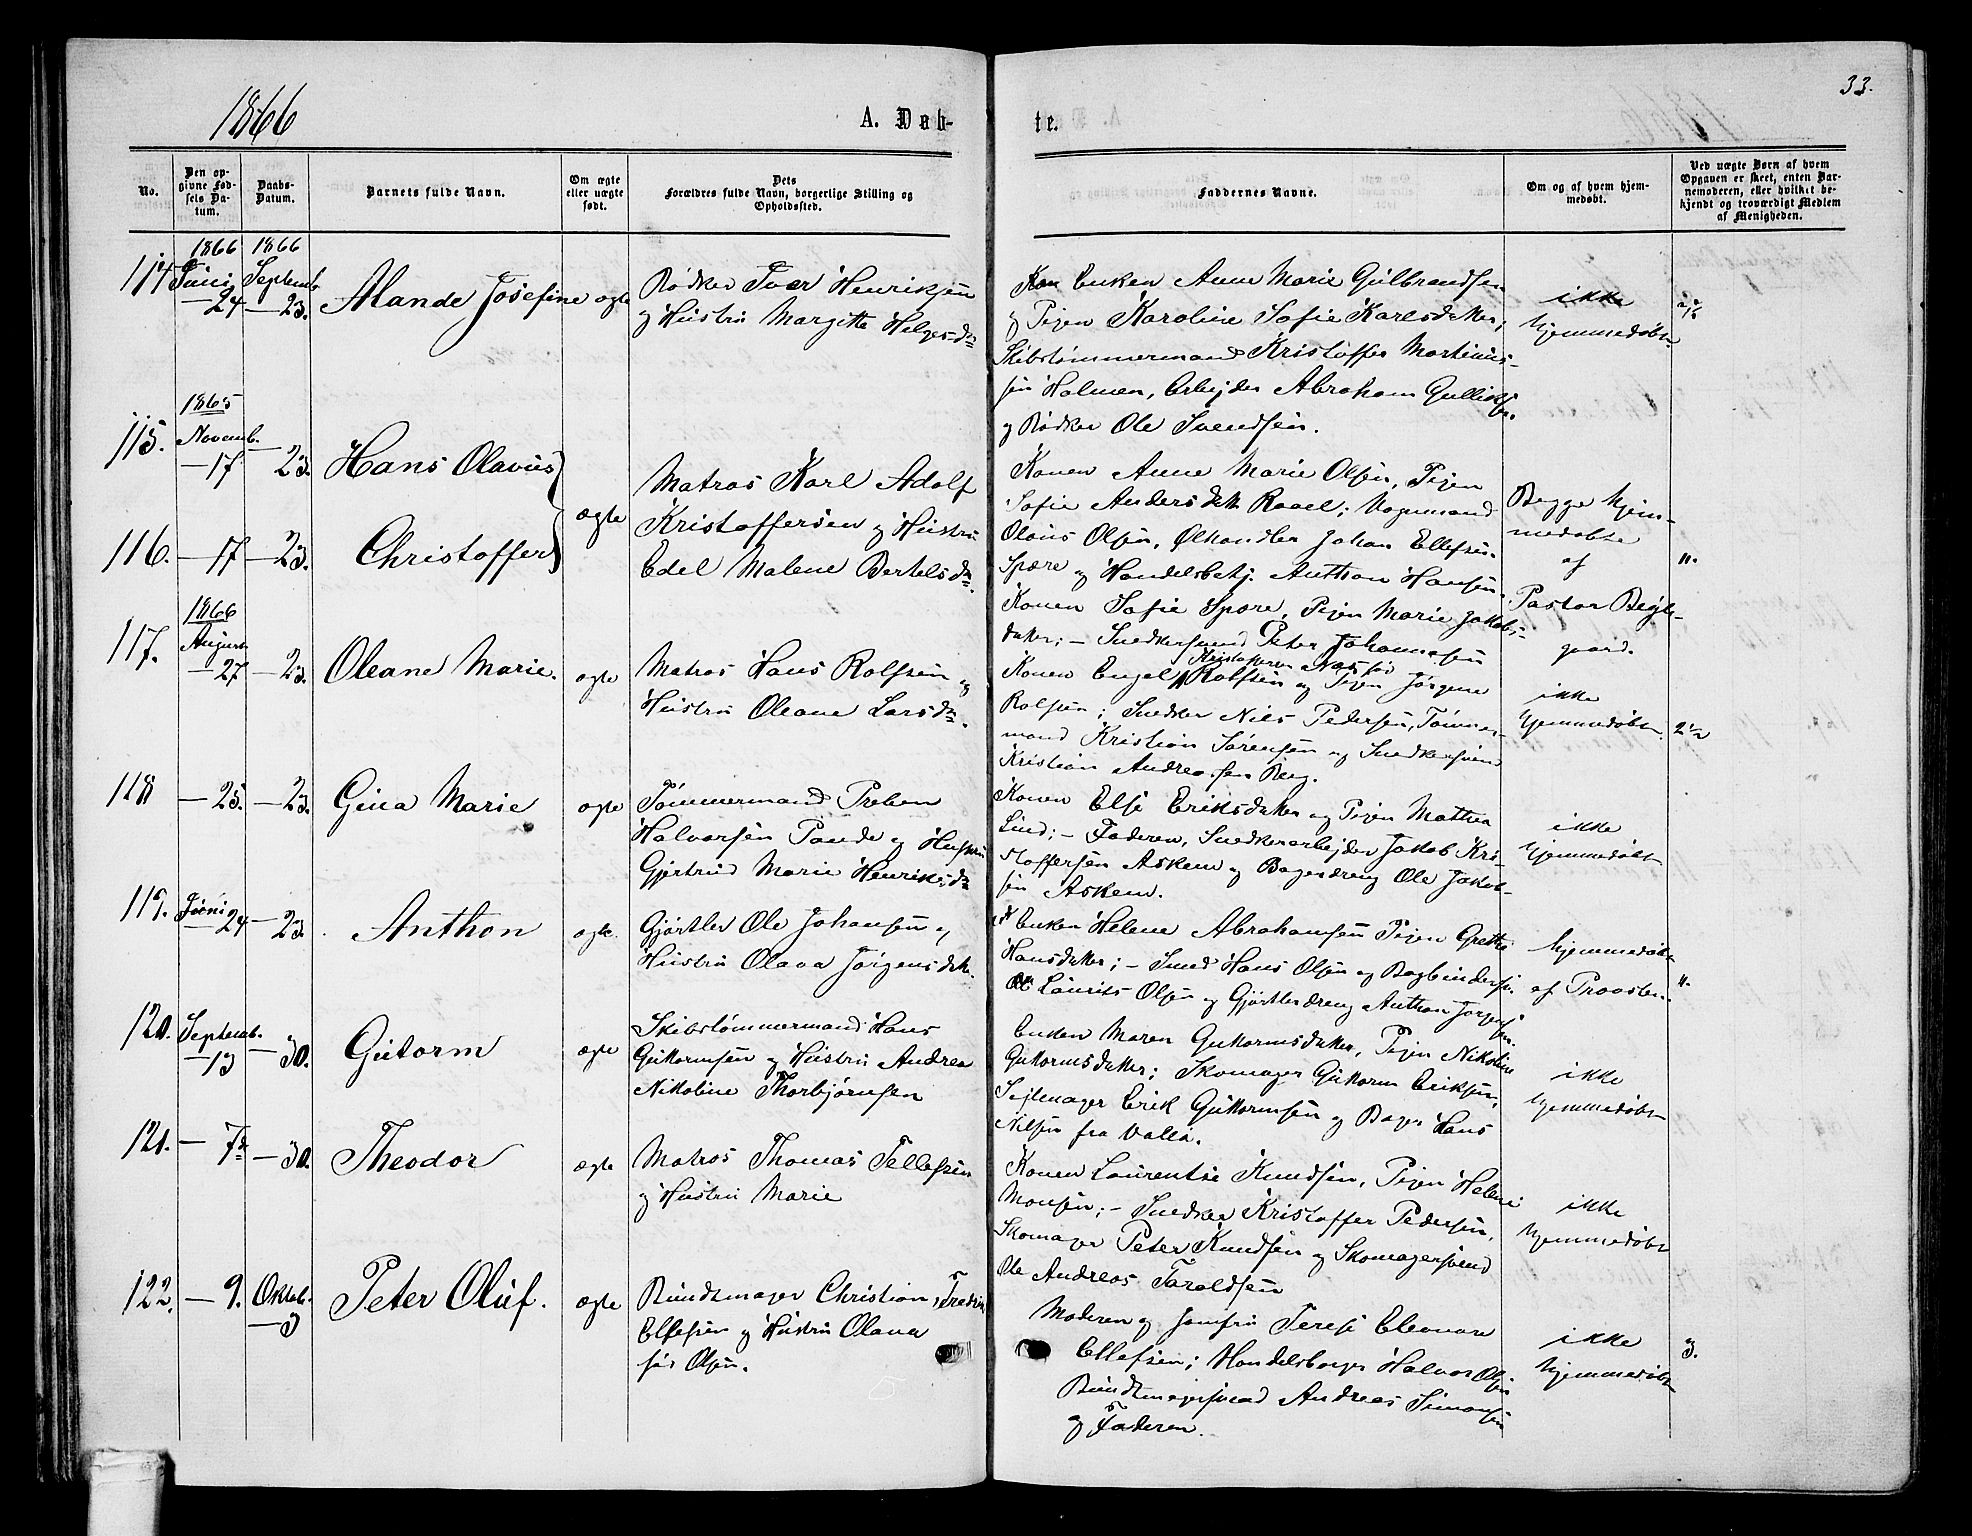 33.
1866
A. Døb-
te.
No.
Den op-
givne Fød-
sels Da-
tum.
Daabs-
Datum.
Barnets fulde Navn.
Om ægte
eller uægte
født.
Dets
Forældres fulde Navn, borgerlige Stilling og
Opholdssted.
Faddernes Navne.
Om og af hvem hjem-
medøbt.
Ved uægte Børn af hvem
Opgaven er skeet, enten Bar-
nemoderen, eller hvilket be-
kjendt og troværdigt Medlem
af Menigheden.
1866 1866
114 Juni 24 Septemb. 23.
Alande Josefine
ægte
Bødker Iver Henriksen
og Hustru Margitte Helgesdr
Enken Anne Marie Gulbrandsen
og Pigen Karoline Sofie Karlsdatter,
Skibstømmermand Kristoffer Martinius-
sen Holmen, Arbejder Abraham Gulliksen
og Bødker Ole Svendsen.
ikke
hjemmedøbt
1865
115. Novemb. 17 23.
Hans Olavus
116. 17 23.
Christoffer
ægte
Matros Karl Adolf
Kristoffersen og Hustru
Edel Malene Bertelsdr.
Konen Anne Marie Olsen, Pigen
Sofie Andersdtr. ; Vognmand
Olaus Olsen, Ølhandler Johan Ellefsen
Spære og Handelsbetj. Anthon Hansen.
Konen Sofie Spære, Pigen Marie Jakobs-
datter; - Snedkersvend Peter Johannesen
Begge hjem-
medøbte
af
Pastor
gaard.
"
1866
117. August 27 23.
Oleane Marie.
ægte
Matros Hans Rolfsen og
Hustru Oleane Larsdr.
Konen Engel Rolfsen og Pigen Jørgine
Kristoffersen Næs før
Rolfsen; Snedker Niels Pedersen, Tømmer-
mand Kristian Sørensen og Snedkersvend
Kristian Andreasen Berg.
ikke
hjemmedøbt.
2
118 25. 23.
Gina Marie
ægte
Tømmermand Preben
Halvorsen Pande og Hustru
Gjertrud Marie Henriksdr
Konen Else Eriksdatter og Pigen Mathea
Lund; - Faderen, Snedkerarbejder Jakob Kri-
stoffersen Askem og Bagerdreng Ole Jakob-
sen Askem.
ikke
hjemmedøbt
119. Juni 24 23.
Anthon
ægte.
Gjørtler Ole Johansen og
Hustru Olava Jørgensdtr.
Enken Helene Abrahamsen Pigen Grethe
Hansdatter; - Smed Hans Olsen og Bogbindersv.
Laurits Olsen og Gjørtlerdreng Anthon Jørgensen.
hjemmedøbt
af Provsten
"
120. Septemb. 13 30.
Gutorm
ægte
Skibstømmermand Hans
Guttormsen og Hustru Andrea
Nikoline Thorbjørnsen
Enken Maren Guttormsdatter, Pigen Nikoline
Guttormsdatter; Skomager Guttorm Eriksen,
Sejlmager Erik Guttormsen og Bager Hans
Nilsen fra Vallø.
ikke
hjemmedøbt
121. 7de 30.
Theodor
ægte
Matros Thomas Tellefsen
og Hustru Marie
Konen Laurentse Knudsen, Pigen Helene
Monsen; - Snedker Kristoffer Pedersen,
Skomager Peter Knudsen og Skomagersvend
Ole Andreas Taraldsen
ikke
hjemmedøbt
122. 9. Oktob. 3
Peter Oluf.
ægte
Bundtmager Christian Fredrik
Ellefsen og Hustru Olava
født Olsen.
Moderen og Jomfru Terese Eleonore
Ellefsen; Handelsborger Halvor Olsen
Bundtmagersvend Andreas Simonsen
og Faderen.
ikke
hjemmedøbt
3.